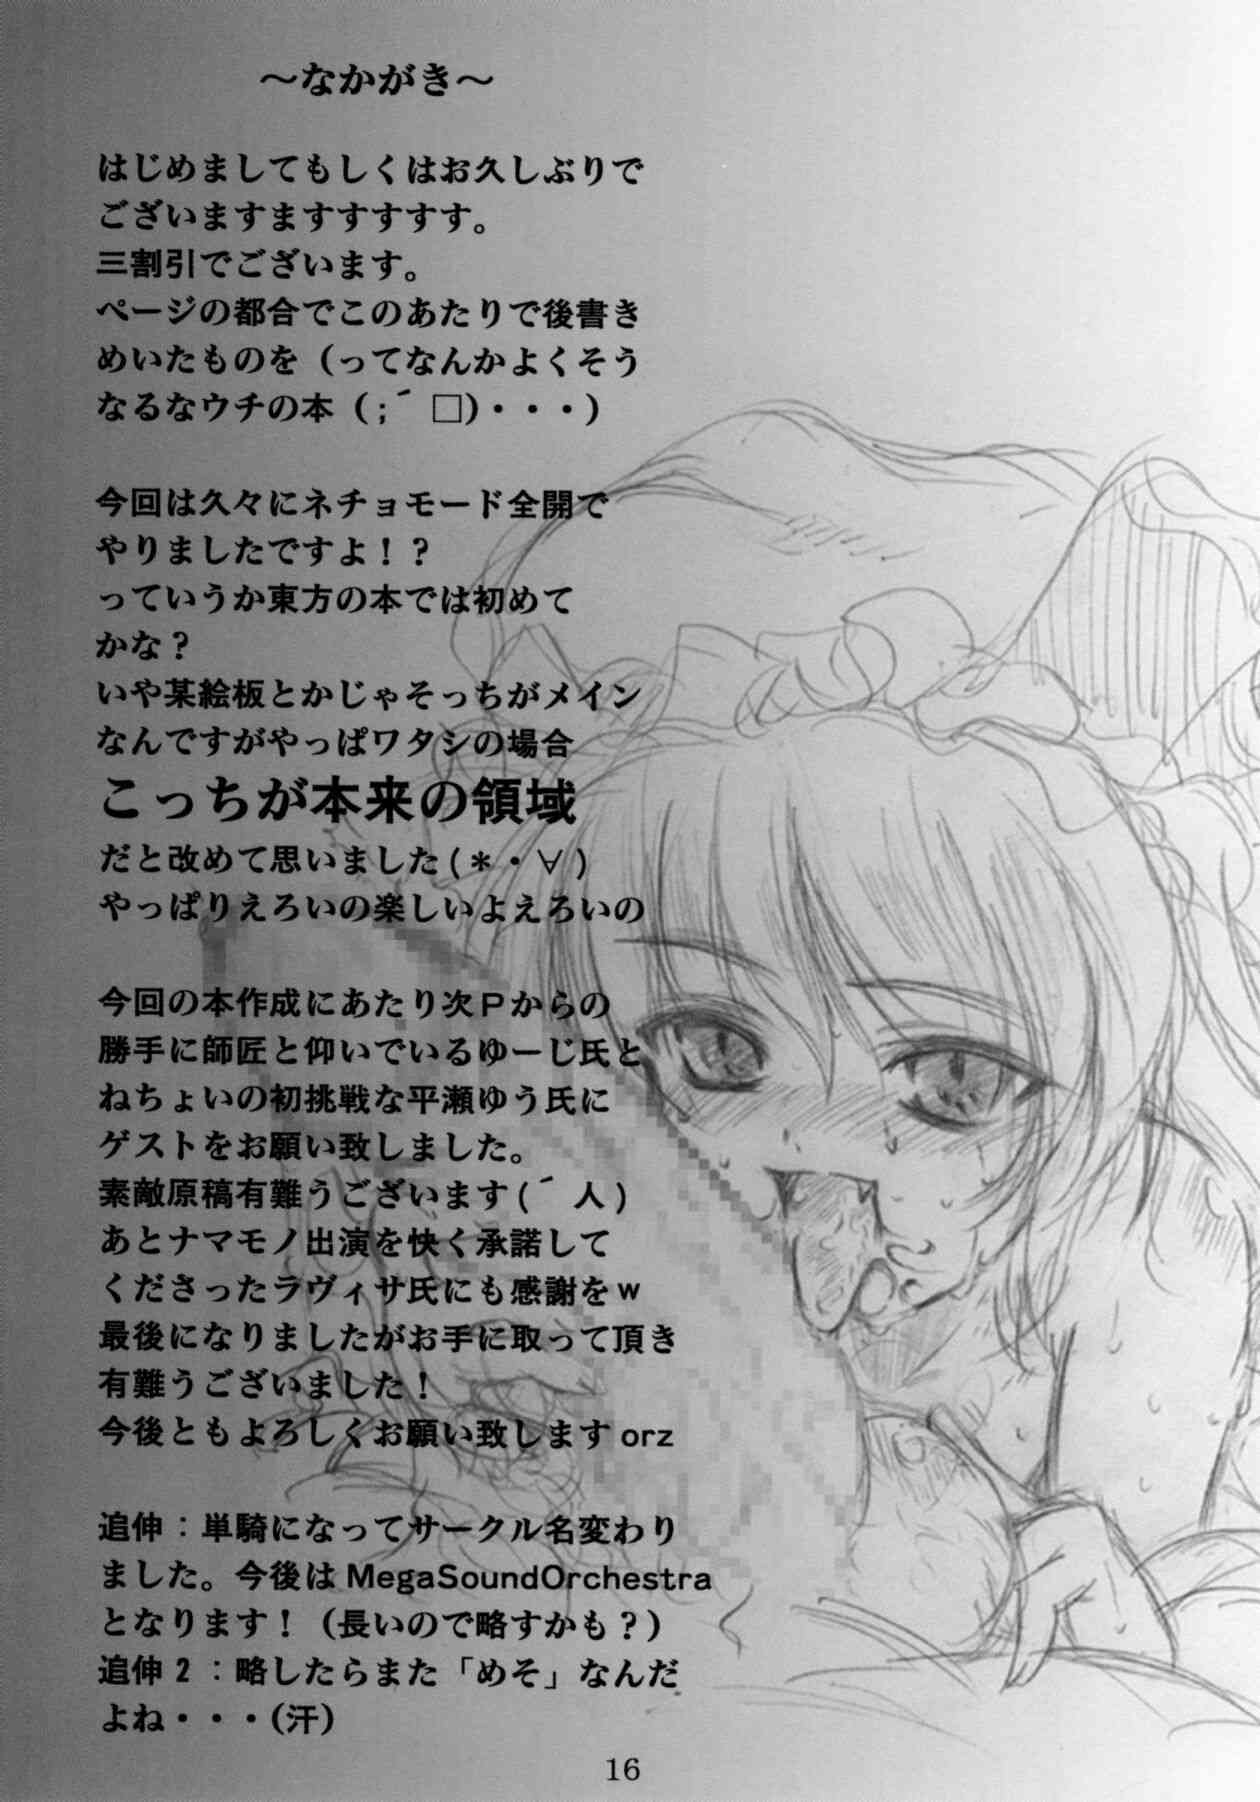 ～なかがき～
はじめましてもしくはお久しぶりで
ございますますすすすす。
三割引でございます。
ページの都合でこのあたりで後書き
めいたものを（ってなんかよくそう
なるなウチの本（;´□)・・・）
今回は久々にネチョモード全開で
やりましたですよ！？
っていうか東方の本では初めて
かな？
いや某絵板とかじゃそっちがメイン
なんですがやっぱワタシの場合
こっちが本来の領域
だと改めて思いました(＊・∀)
やっぱりえろいの楽しいよえろいの
今回の本作成にあたり次Ｐからの
勝手に師匠と仰いでいるゆーじ氏と
ねちょいの初挑戦な平瀬ゆう氏に
ゲストをお願い致しました。
素敵原稿有難うございます(´人)
あとナマモノ出演を快く承諾して
くださったラヴィサ氏にも感謝をｗ
最後になりましたがお手に取って頂き
有難うございました！
今後ともよろしくお願い致しますorz
追伸：単騎になってサークル名変わり
ました。今後はMegaSoundOrchestra
となります！（長いので略すかも？）
追伸2：略したらまた「めそ」なんだ
よね・・・(汗)
16